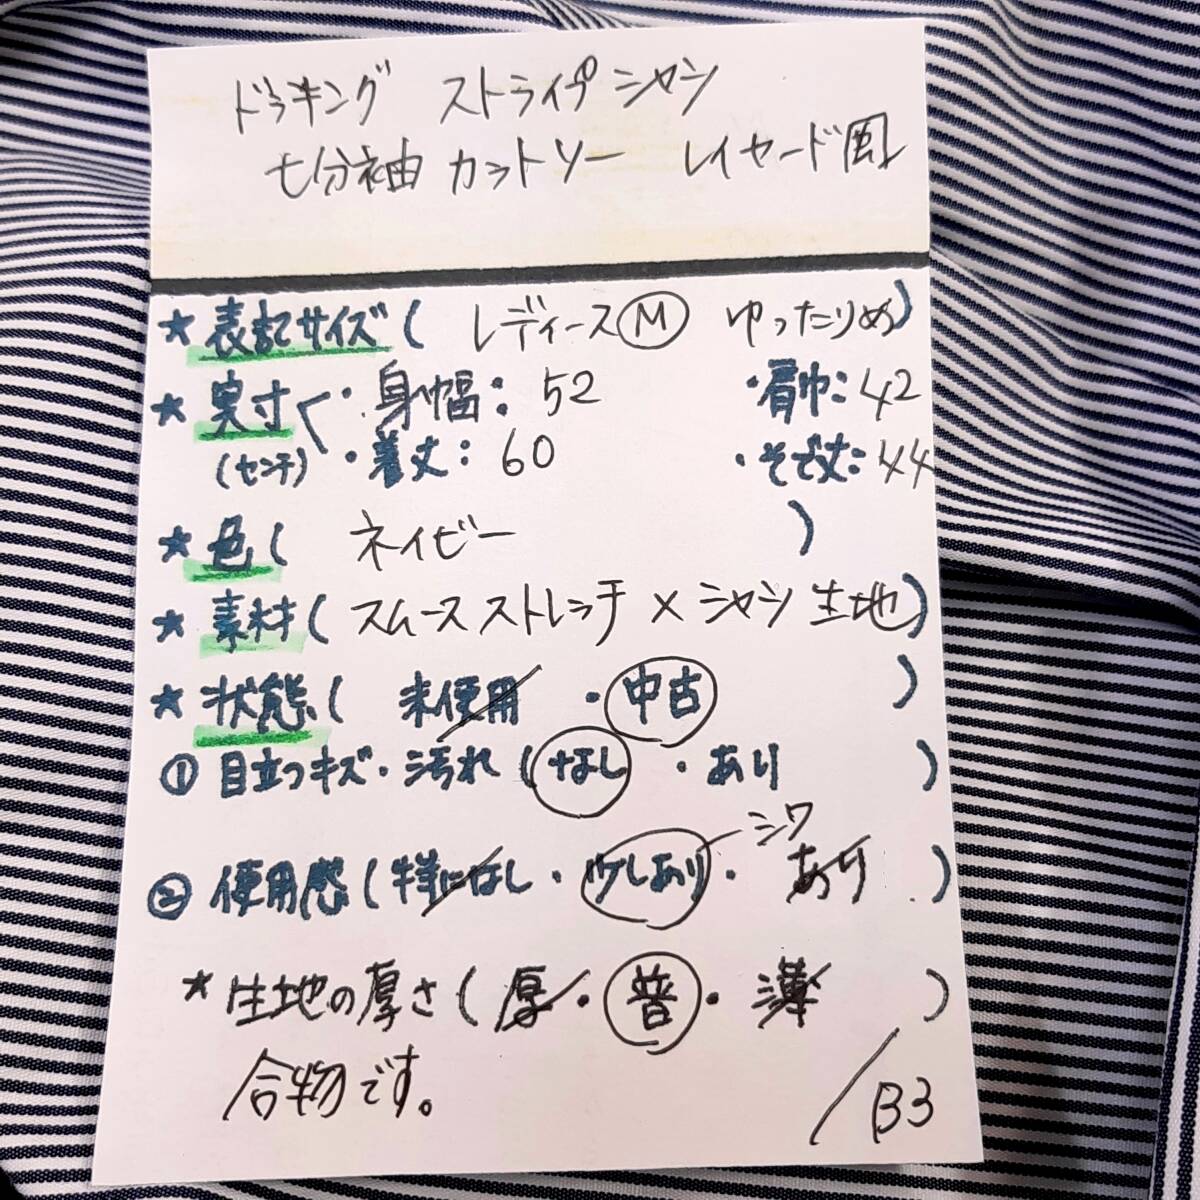 ドッキング ストライプシャツ
七分袖 カットソー レイヤード風
★表記サイズ( レディースⓂ ゆったりめ)
★実寸く・身幅:52 ・肩巾:42
(センチ) ・着丈:60 ・そで丈:44
★色( ネイビー )
★素材(スムースストレッチ×シャツ生地)
★状態( 未使用 ・中古 )
①目立つキズ・汚れ(なし ・あり )
シワ
②使用感(特になし・少しあり・ あり )
*生地の厚さ(厚・普・薄 )
合物です。
/B3